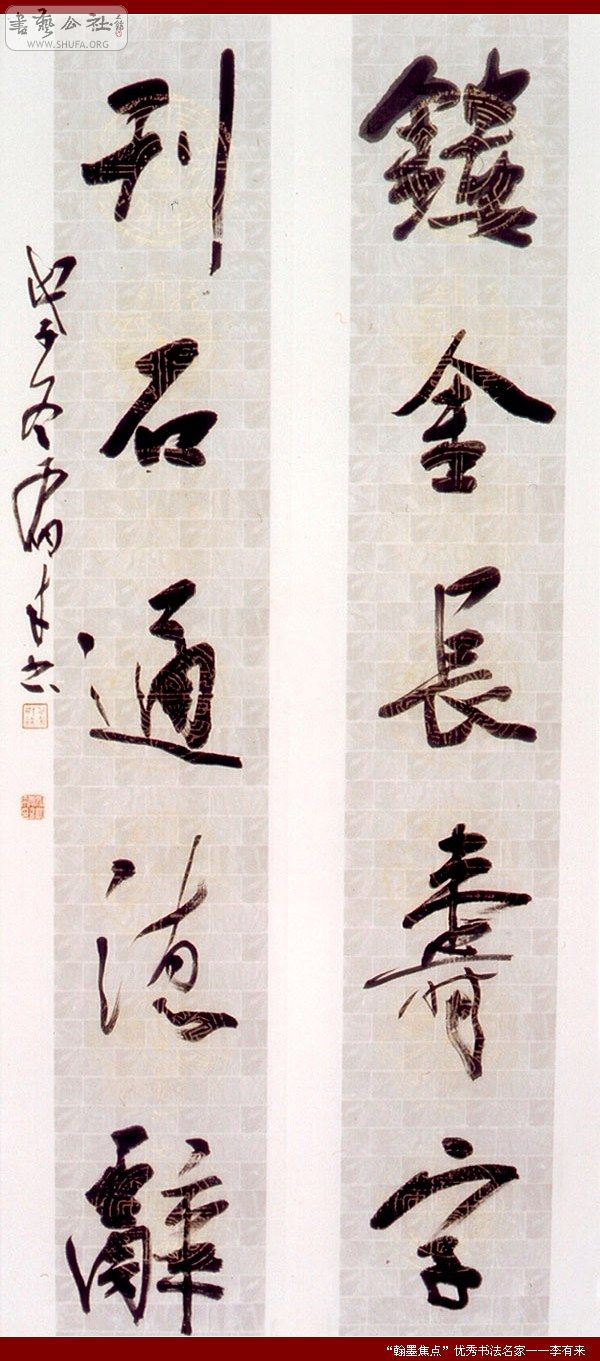 書藝公社
WWW.SHUFA.ORG
鏤金長壽字
刊石通德辭
戊子冬有来书
“翰墨焦点”优秀书法名家——李有来